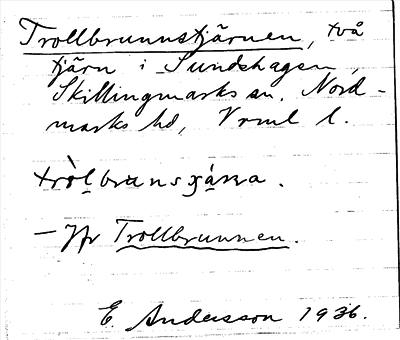 Trollbrunnstjärnen, två
tjärn i Sundshagen,
Skillingmarks sn. Nord-
marks hd, Vrml l.
tròl̥brunsɣá̤rna.
– Jfr Trollbrunnen.
E. Andersson 1936.